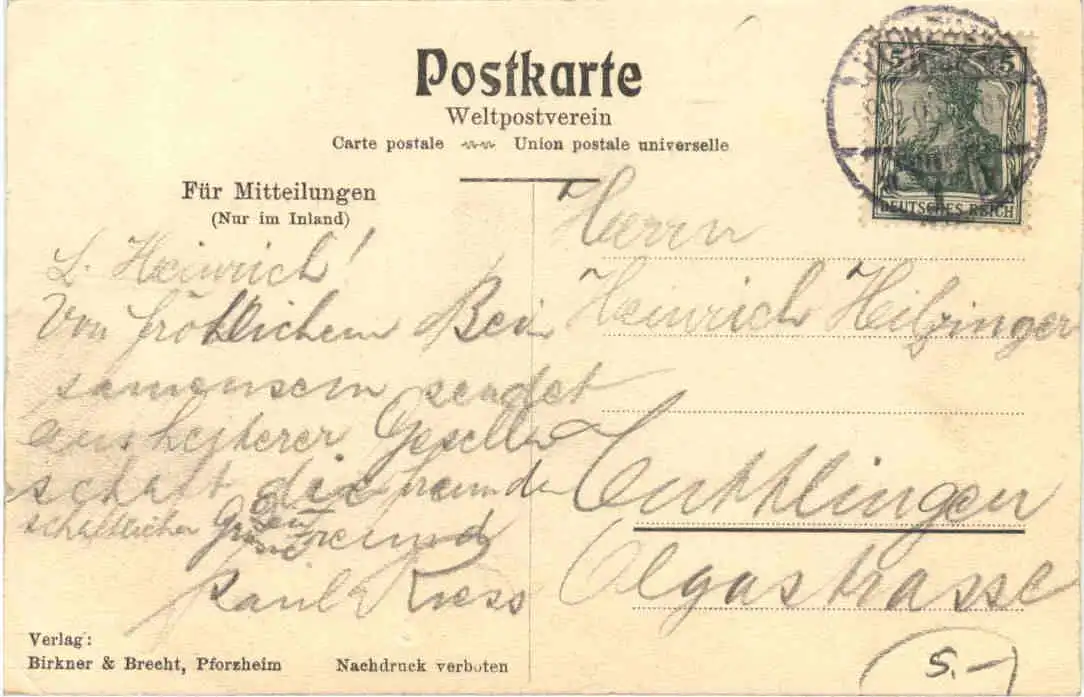 Postkarte
Weltpostverein
Carte postale Union postale universelle
5 5
DEUTSCHES REICH
Für Mitteilungen
(Nur im Inland)
L. Heinrich!
Von fröhlichem Bei
samensein sendet
aus heiterer Gesell
schaft die freund
schaftlichen Grüsse
Freund
Paul Kress
Herrn
Heinrich Heilzinger
Tuttlingen
Olgastrasse
Verlag:
Birkner & Brecht, Pforzheim Nachdruck verboten
5.–